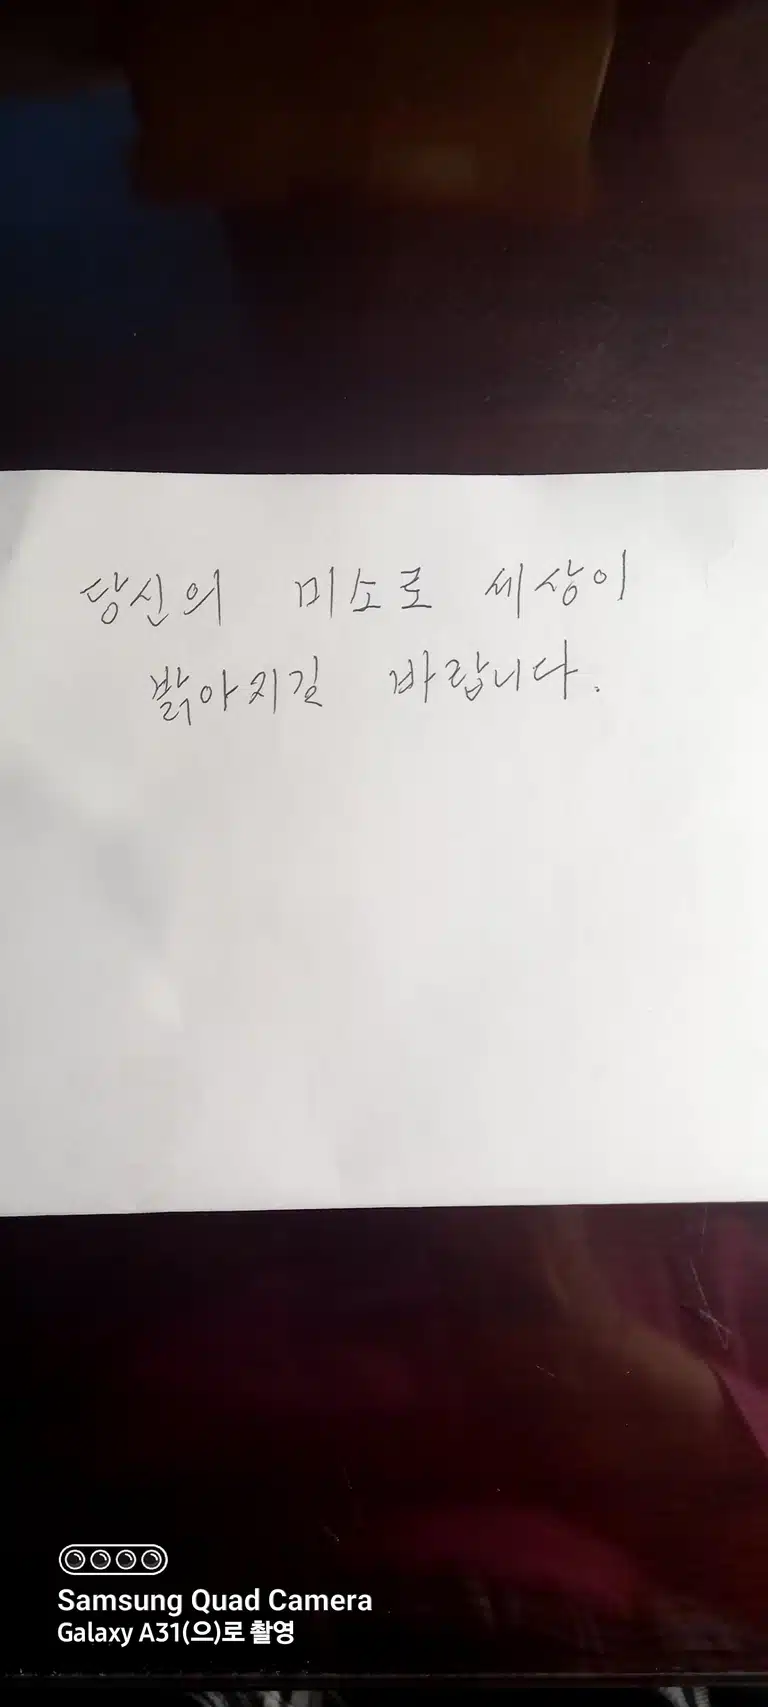 당신의 미소로 세상이
밝아지길 바랍니다.
Samsung Quad Camera
Galaxy A31(으)로 촬영